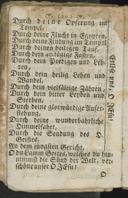 Durch deine Opferung im
Tempel.
Durch deine Flucht in Egypten.
Durch deine Findung im Tempel
Durch deinen heiligen Tauf.
Durch dein 40-tägiges Fasten.
Durch dein Predigen und Leh-
ren.
Durch dein heilig Leben und
Wandel.
Durch dein vielfältige Zähren.
Durch dein bitter Leyden und
Sterben.
Durch deine glorwürdige Aufer-
stehung.
Durch deine wunderbahrliche
Himmelfahrt.
Durch die Sendung des H.
Geistes.
Am dem jüngsten Gericht.
O du Lamm Gottes, welches du hin-
nimmst die Sünd der Welt, ver-
schone unser O JEsu!